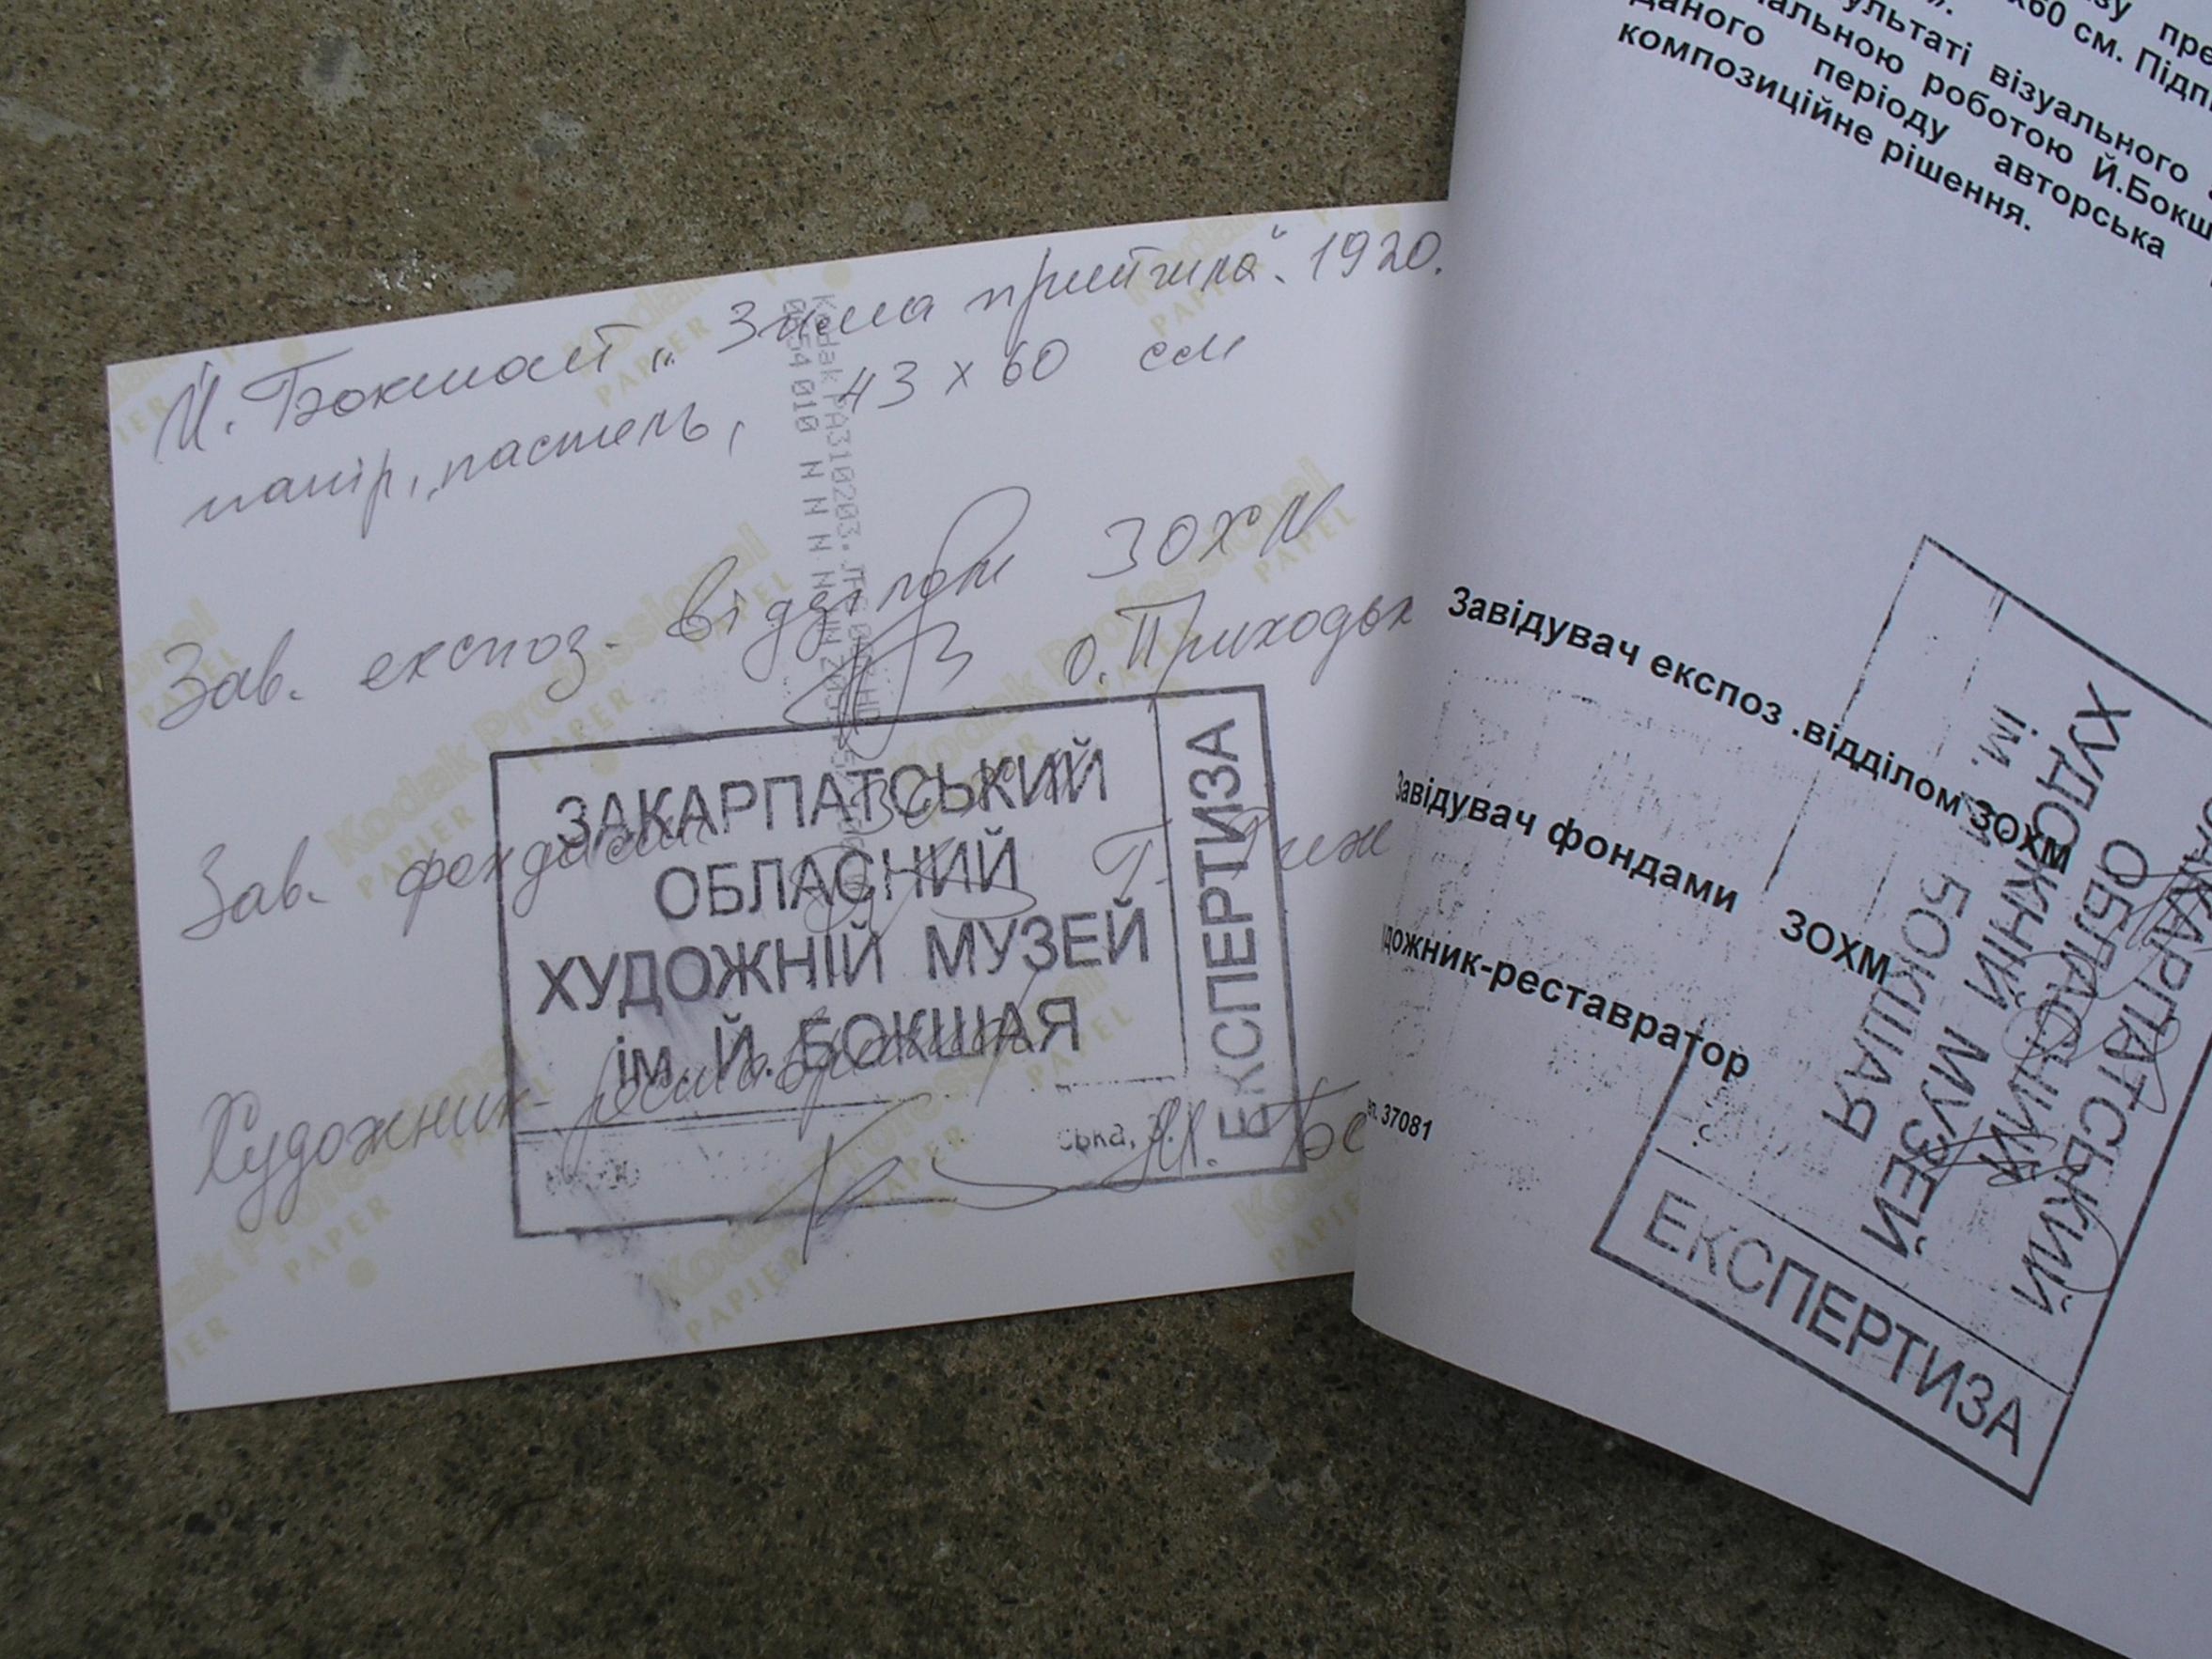 Й. Бокшай „Зима прийшла". 1920.
папір, пастель, 43 х 60 см
Зав. експоз. відділом ЗОХМ
О. Приходьк
Зав. фондами ЗОХМ
Художник-реставратор
ЗАКАРПАТСЬКИЙ
ОБЛАСНИЙ
ХУДОЖНІЙ МУЗЕЙ
ім. Й. БОКШАЯ
ЕКСПЕРТИЗА
ська, 3.
Kodak Professional
PAPIER PAPEL
х60 см. Підп
ультаті візуального
альною роботою Й.Бокш
даного періоду авторська
композиційне рішення.
Завідувач експоз .відділом ЗОХМ
Завідувач фондами ЗОХМ
дожник-реставратор
37081
ЗАКАРПАТСЬКИЙ
ОБЛАСНИЙ
ХУДОЖНІЙ МУЗЕЙ
ім. Й. БОКШАЯ
ЕКСПЕРТИЗА